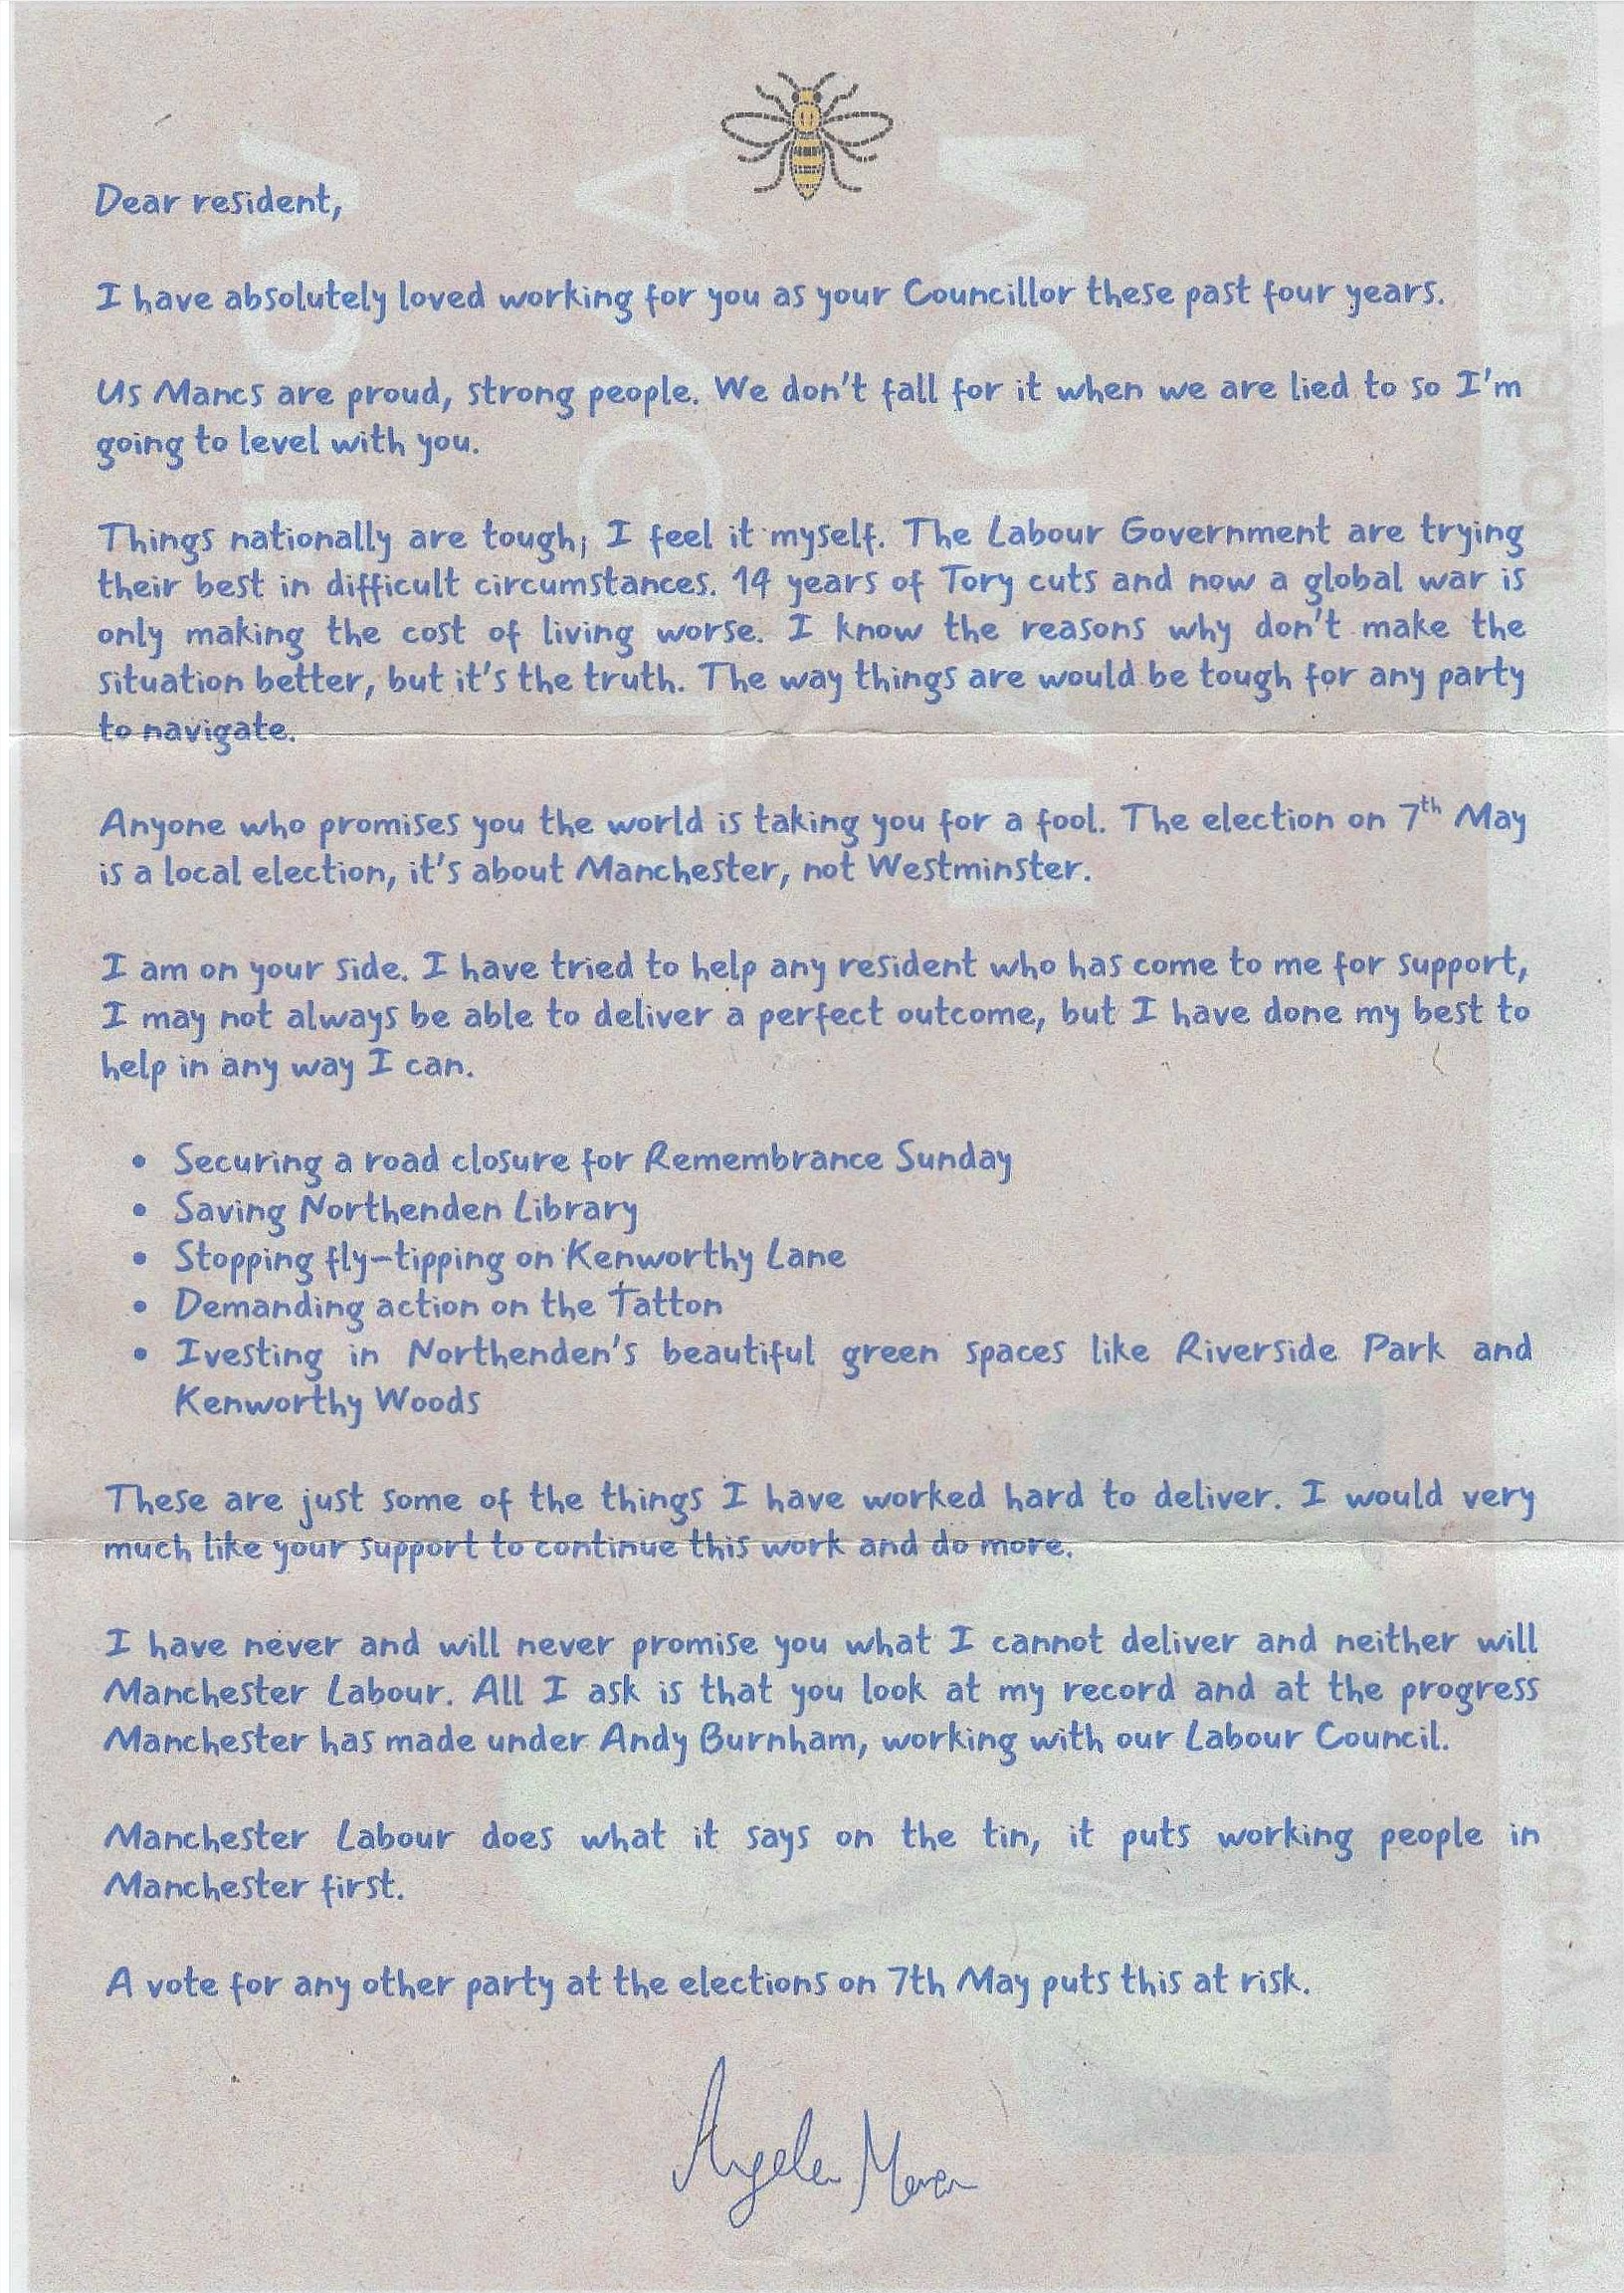 Dear resident,
I have absolutely loved working for you as your Councillor these past four years.
Us Mancs are proud, strong people. We don't fall for it when we are lied to so I'm
going to level with you.
Things nationally are tough; I feel it myself. The Labour Government are trying
their best in difficult circumstances. 14 years of Tory cuts and now a global war is
only making the cost of living worse. I know the reasons why don't make the
situation better, but it's the truth. The way things are would be tough for any party
to navigate.
Anyone who promises you the world is taking you for a fool. The election on 7th May
is a local election, it's about Manchester, not Westminster.
I am on your side. I have tried to help any resident who has come to me for support,
I may not always be able to deliver a perfect outcome, but I have done my best to
help in any way I can.
• Securing a road closure for Remembrance Sunday
• Saving Northenden Library
• Stopping fly-tipping on Kenworthy Lane
• Demanding action on the Tatton
• Ivesting in Northenden's beautiful green spaces like Riverside Park and
Kenworthy Woods
These are just some of the things I have worked hard to deliver. I would very
much like your support to continue this work and do more.
I have never and will never promise you what I cannot deliver and neither will
Manchester Labour. All I ask is that you look at my record and at the progress
Manchester has made under Andy Burnham, working with our Labour Council.
Manchester Labour does what it says on the tin, it puts working people in
Manchester first.
A vote for any other party at the elections on 7th May puts this at risk.
Angela